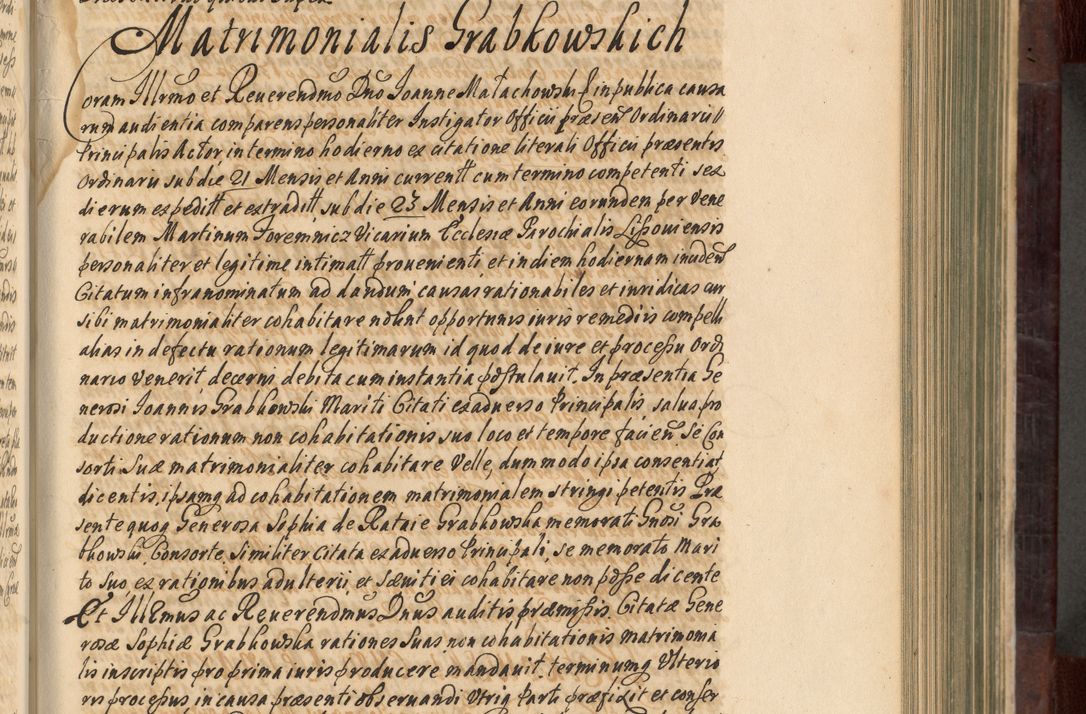 Matrimonialis Grabkowskich
Coram Illrmo et Reuerendmo Dno Joanne Małachowski E in publica causa
rum audientia comparens personaliter Instigator Officii præsent Ordinarii
Principalis Actor, in termino hodierno ex citatione literali Officii præsentis
Ordinarii sub die 21 Mensis et Anni current cum termino competenti sex
dierum expedit et extradit sub die 23 Mensis et Anni eorundem per Vene
rabilem Martinum Foremnicz Vicarium Ecclesiæ Parochialis Lissouiensis
personaliter et legitime intimat prouenienti et in diem hodiernam inciden
Citatum infranominatum ad dandum causas rationabiles et iuridicas cur
sibi matrimonialiter cohabitare nolunt opportunis iuris remediis compelli
alias in defectu rationum legitimarum id quod de iure et processu Ordi
nario Venerit decerni debita cum instantia postulauit. In præsentia Ge
nerosi Joannis Grabkowski Mariti Citati ex aduerso Principalis, salua pro
ductione rationum non cohabitationis suo loco et tempore facien Se Con
sorti Suæ matrimonialiter cohabitare Velle, dummodo ipsa consentiat
dicentis, ipsamq ad cohabitationem matrimonialem stringi petentis Præ
sente quoq Generosa Sophia de Rataie Grabkowska memorati Gnosi Gra
bkowski Consorte, Similiter Citata ex aduerso Principali, se memorato Mari
to Suo ex rationibus adulterii, et Sæuitiei cohabitare non posse dicente
Et Illlmus ac Reuerendmus Dnus auditis præmissis Citatæ Gene
rosæ Sophiæ Grabkowska rationes Suas non cohabitationis matrimonia
lis in scriptis pro prima iuris producere mandauit, terminumq Vlterio
ris processus in causa præsenti obseruandi Vtriq Parti præfixit et conser